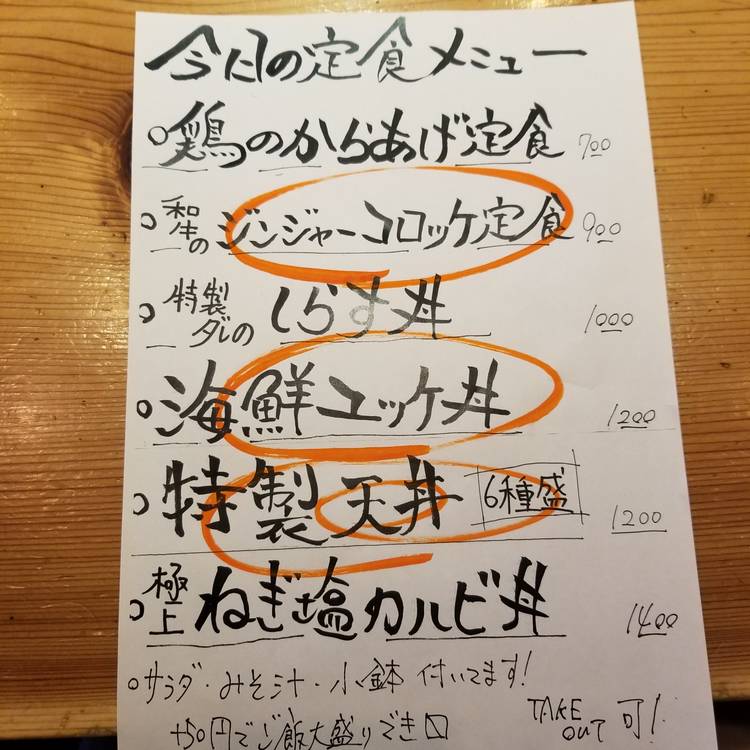 今日の定食メニュー
○鶏のからあげ定食 700
○和牛のジンジャーコロッケ定食 900
○特製ダレのしらす丼 1000
○海鮮ユッケ丼 1200
○特製天丼 6種盛 1200
○極上ねぎ塩カルビ丼 1400
○サラダ・みそ汁・小鉢 付いてます!
+50円でご飯大盛りでき〼 TAKE OUT 可!